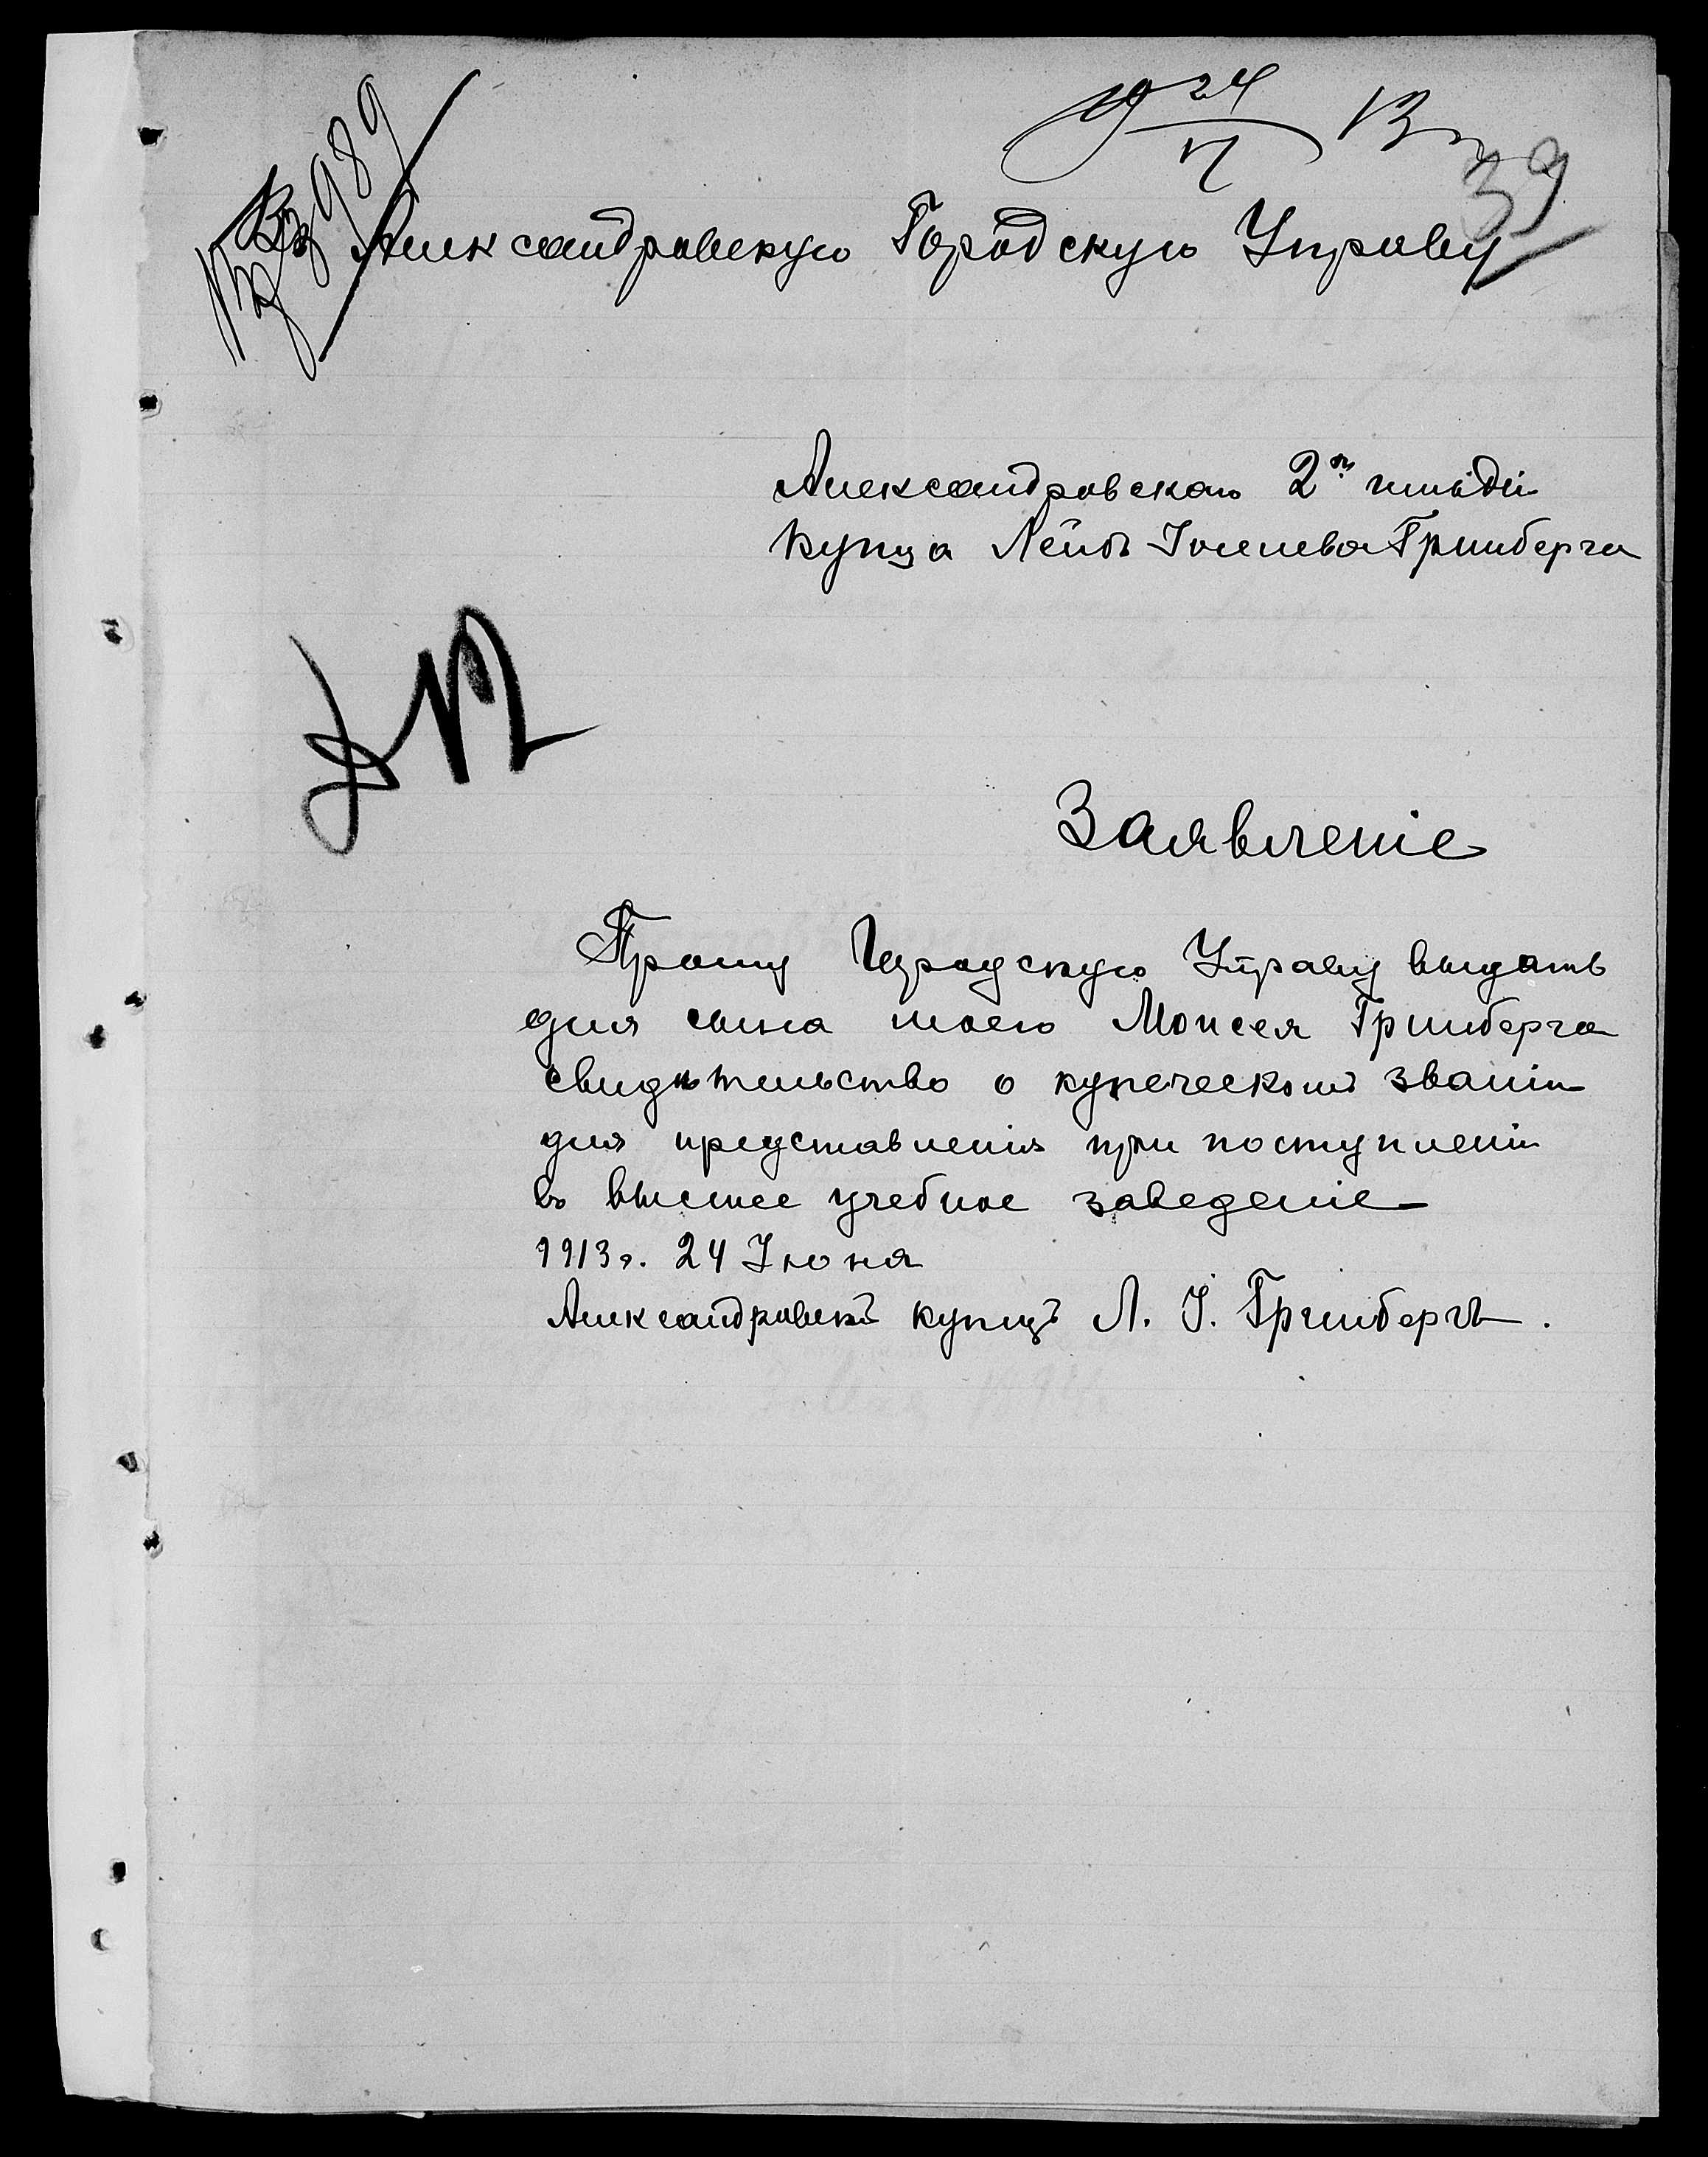 24
13 г.
39
3989
Въ Александровскую Городскую Управу
Александровскаго 2й гильдіи
Купца Лейбъ Іоселева Гринберга
Заявленіе
Прошу Городскую Управу выдать
для сына моего Моисея Гринберга
свидѣтельство о купеческомъ званіи
для представленія при поступленіи
въ высшее учебное заведеніе
1913 г. 24 Іюня
Александровскій купецъ Л. І. Гринбергъ.